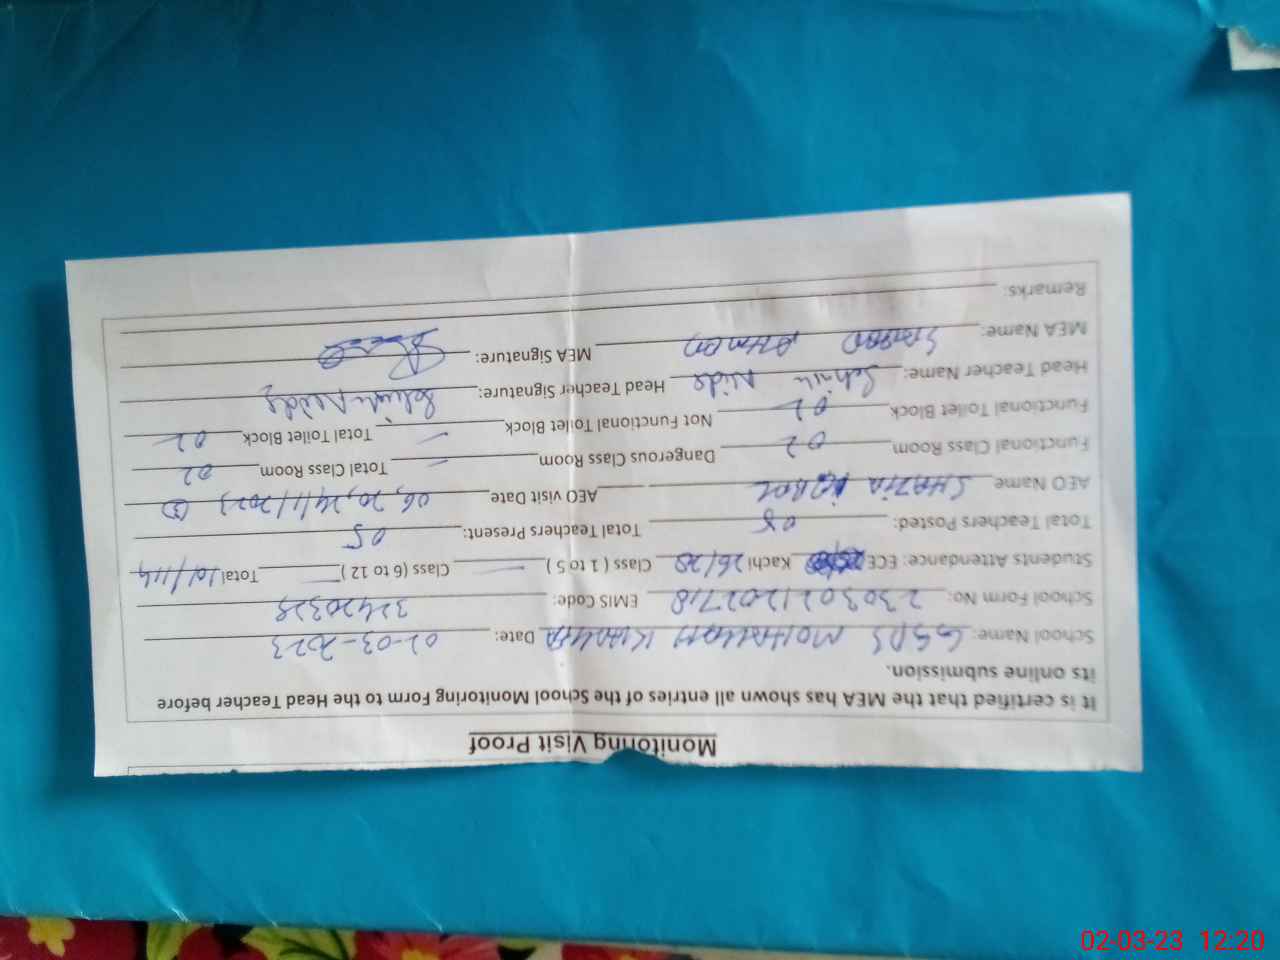 Monitoring Visit Proof
It is certified that the MEA has shown all entries of the School Monitoring Form to the Head Teacher before
its online submission.
School Name: GGPS MOHALLAH Date: 02-03-2023
School Form No: 230302120 EMIS Code: 32420328
Students Attendance: ECE Kachi 26/28 Class ( 1 to 5 ) — Class (6 to 12 ) — Total 101/114
Total Teachers Posted: 05 Total Teachers Present: 05
AEO Name SHAZIA IQBAL AEO visit Date 06, 20, 24/1/2023 3
Functional Class Room 02 Dangerous Class Room — Total Class Room 02
Functional Toilet Block 02 Not Functional Toilet Block — Total Toilet Block 02
Head Teacher Name: Nida Head Teacher Signature:
MEA Name: AHMAD MEA Signature:
Remarks:
02-03-23 12:20